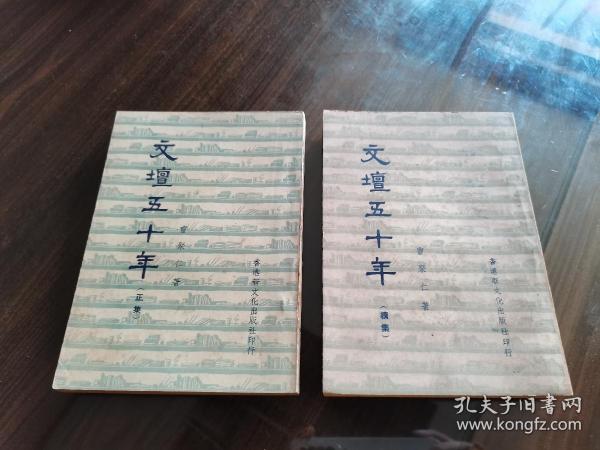 文壇五十年
（正集）
曹聚仁 著
香港新文化出版社印行
文壇五十年
（續集）
曹聚仁 著
香港新文化出版社印行
孔夫子旧书网
www.kongfz.com